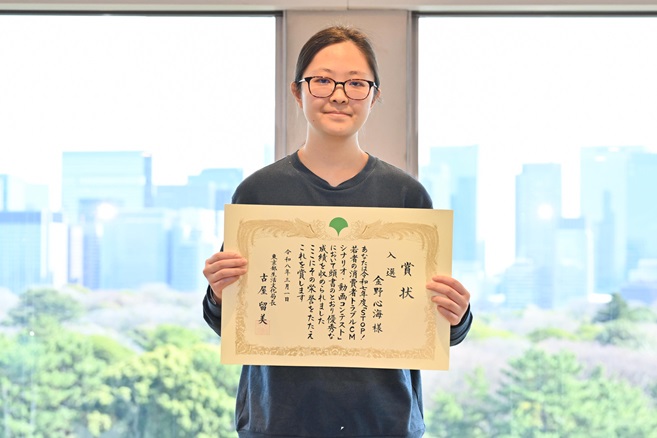 賞状
入選
金野心海様
あなたは令和七年度「STOP!
若者の消費者トラブルCM
シナリオ・動画コンテスト」
において頭書のとおり優秀な
成績を収められました
ここにその栄誉をたたえ
これを賞します
令和八年三月一日
東京都生活文化局長
古屋留美